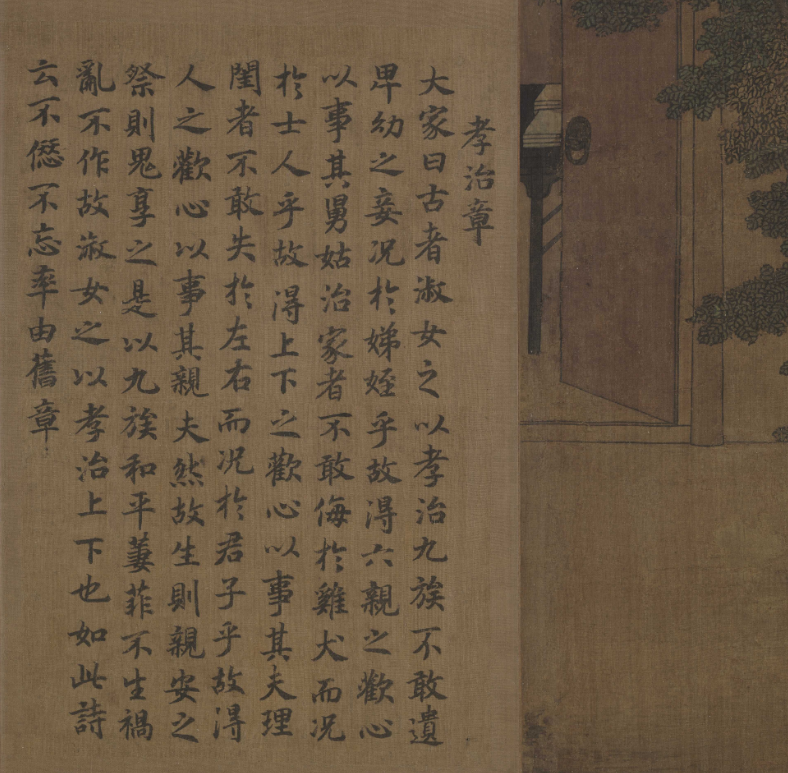 孝治章
大家曰古者淑女之以孝治九族不敢遺
卑幼之妾况於娣姪乎故得六親之歡心
以事其舅姑治家者不敢侮於雞犬而况
於士人乎故得上下之歡心以事其夫理
閨者不敢失於左右而况於君子乎故得
人之歡心以事其親夫然故生則親安之
祭則鬼享之是以九族和平萋菲不生禍
亂不作故淑女之以孝治上下也如此詩
云不愆不忘率由舊章